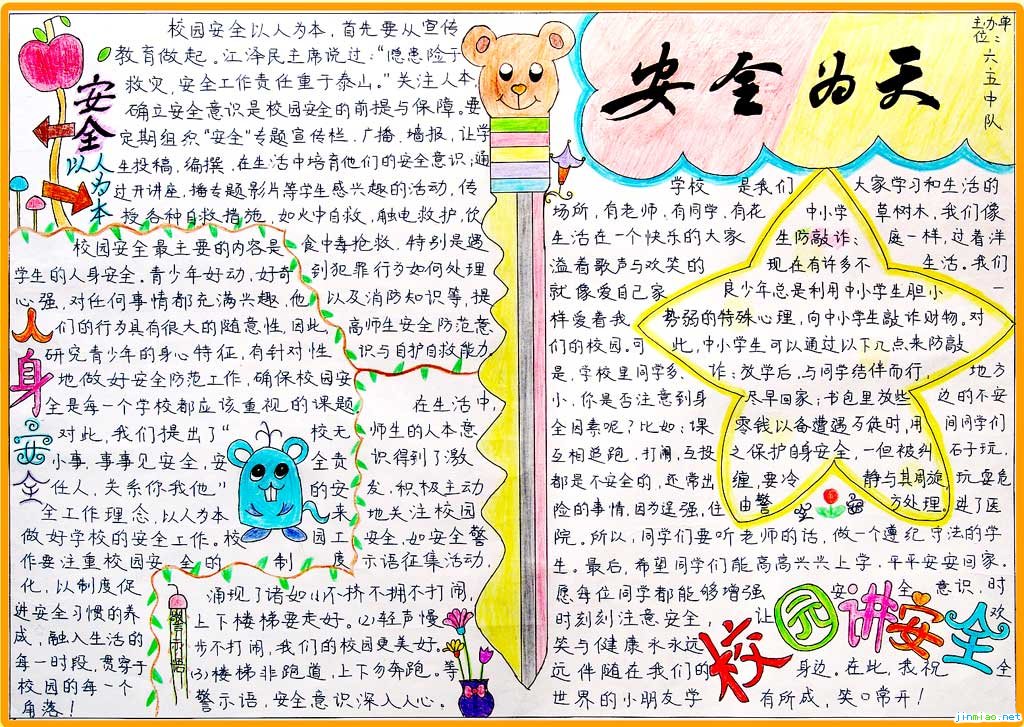 安全为天
主办单位：六五中队
安全
以人为本
校园安全以人为本，首先要从宣传
教育做起。江泽民主席说过："隐患险于
救灾，安全工作责任重于泰山。"关注人本，
确立安全意识是校园安全的前提与保障。要
定期组织"安全"专题宣传栏，广播，墙报，让学
生投稿，编撰，在生活中培育他们的安全意识；通
过开讲座，播专题影片等学生感兴趣的活动，传
授各种自救措施，如火中自救，触电救护，饮
食中毒抢救，特别是遇
到犯罪行为如何处理
以及消防知识等，提
高师生安全防范意
识与自护自救能力。
人身安全
校园安全最主要的内容是
学生的人身安全。青少年好动，好奇
心强，对任何事情都充满兴趣，他
们的行为具有很大的随意性，因此，
研究青少年的身心特征，有针对性
地做好安全防范工作，确保校园安
全是每一个学校都应该重视的课题
对此，我们提出了"校无
小事，事事见安全，安全责
任人，关系你我他"的安
全工作理念，以人为本来
做好学校的安全工作。校园工
作要注重校园安全的制度
化，以制度促
进安全习惯的养
成，融入生活的
每一时段，贯穿于
校园的每一个
角落！
在生活中，
师生的人本意
识得到了激
发，积极主动
地关注校园
安全，如安全警
示语征集活动，
警示语
涌现了诸如(1)不挤不拥不打闹，
上下楼梯要走好。(2)轻声慢
步不打闹，我们的校园更美好。
(3)楼梯非跑道，上下勿奔跑。等
警示语，安全意识深入人心。
学校是我们大家学习和生活的
场所，有老师，有同学，有花草树木，我们像
生活在一个快乐的大家庭一样，过着洋
溢着歌声与欢笑的生活。我们
就像爱自己家一
样爱着我
们的校园。可
是，学校里同学多，地方
小，你是否注意到身边的不安
全因素呢？比如：课间同学们
互相追跑，打闹，互投石子玩，
都是不安全的，还常出玩耍危
险的事情，因为逞强，住进了医
院。所以，同学们要听老师的话，做一个遵纪守法的学
生。最后，希望同学们能高高兴兴上学，平平安安回家。
愿每位同学都能够增强安全意识，时
时刻刻注意安全，让欢
笑与健康永永远
远伴随在我们的身边。在此，我祝全
世界的小朋友学有所成，笑口常开！
中小学
生防敲诈：
现在有许多不
良少年总是利用中小学生胆小
势弱的特殊心理，向中小学生敲诈财物。对
此，中小学生可以通过以下几点来防敲
诈：放学后，与同学结伴而行，
尽早回家；书包里放些
零钱以备遭遇歹徒时，用
之保护自身安全，一但被纠
缠，要冷静与其周旋
由警方处理。
校园讲安全
jinmiao.net